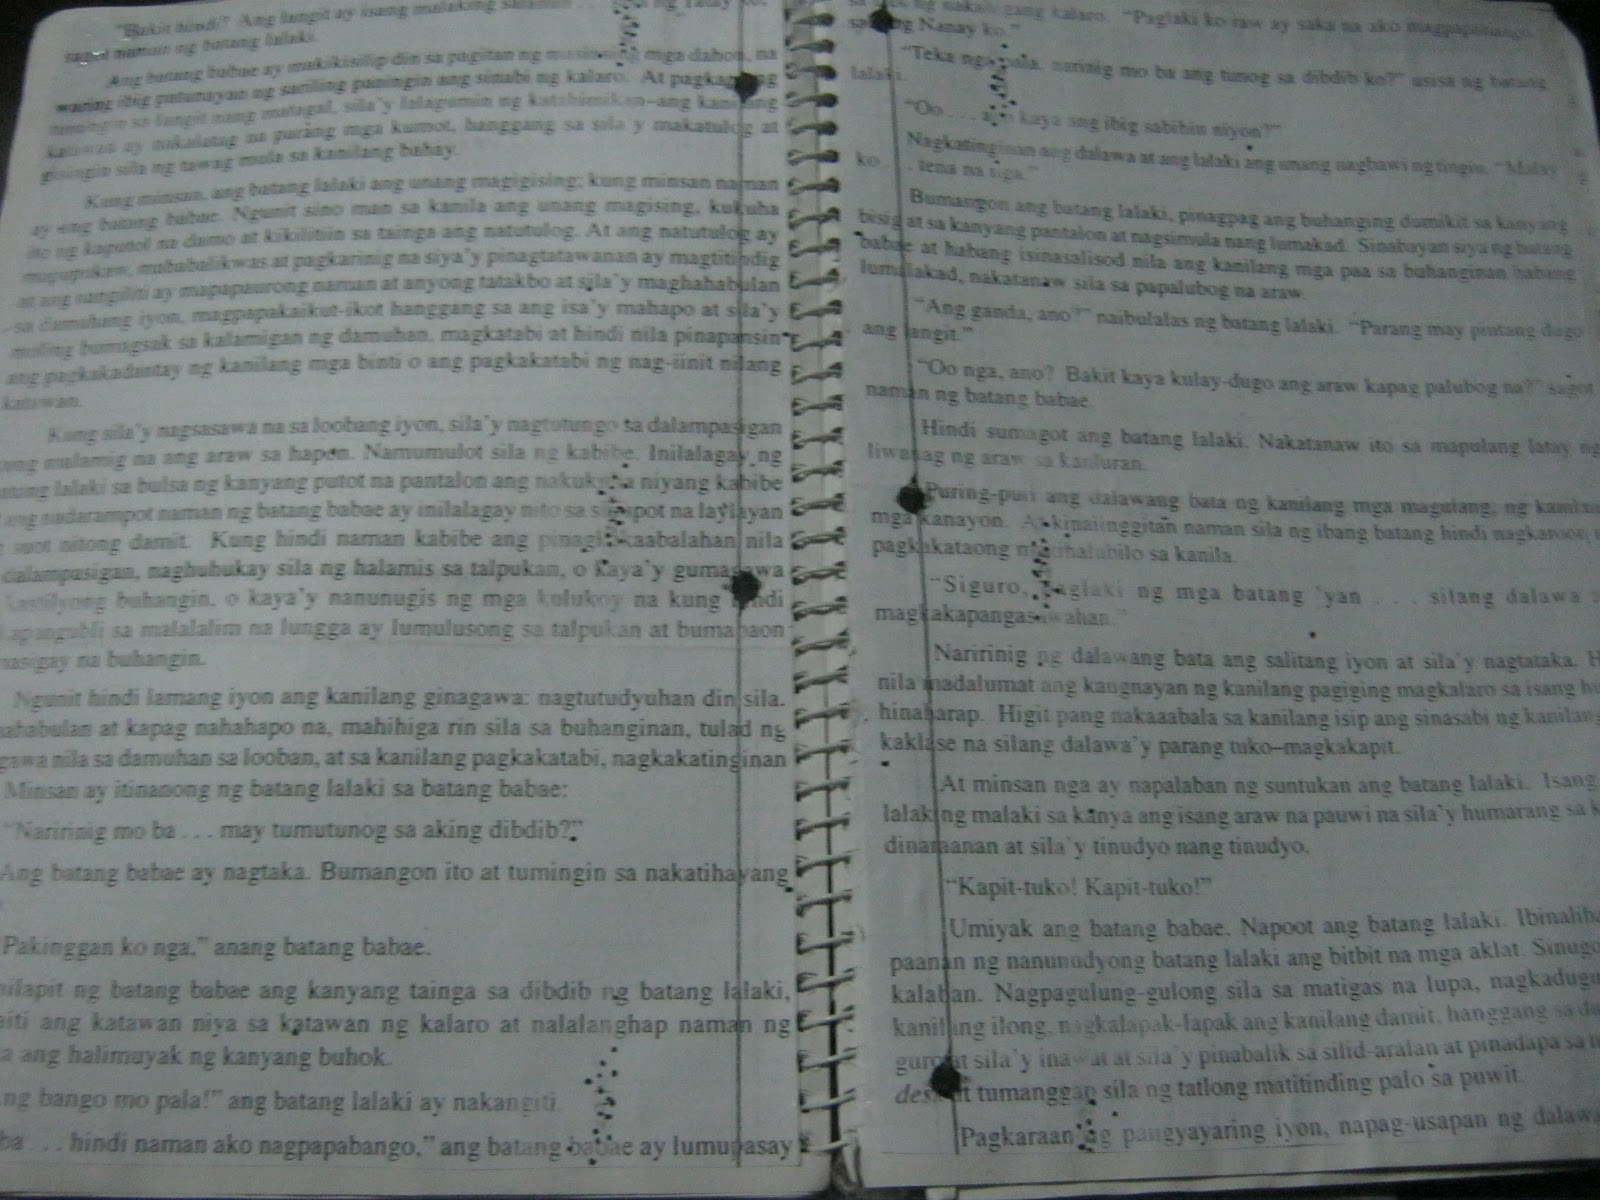 "Bakit hindi? Ang langit ay isang malaking salamin . . . ng Tatay ko,"
sagot naman ng batang lalaki.
Ang batang babae ay makikisilip din sa pagitan ng mga dahon, na
waring ibig patunayan ng sariling paningin ang sinabi ng kalaro. At
tumingin sa langit nang matagal, sila'y lalagumin ng katahimikan–ang kanilang
katawan ay nakalatag na parang mga kumot, hanggang sa sila'y makatulog at
gisingin sila ng tawag mula sa kanilang bahay.
Kung minsan, ang batang lalaki ang unang magigising; kung minsan naman
ay ang batang babae. Ngunit sino man sa kanila ang unang magising, kukuha
ito ng kaputol na damo at kikilitiin sa tainga ang natutulog. At ang natutulog ay
mapapukaw, mababalikwas at pagkarinig na siya'y pinagtatawanan ay magtitindig
at ang nangiliti ay mapapaurong naman at anyong tatakbo at sila'y maghahabulan
sa damuhang iyon, magpapakaikut-ikot hanggang sa ang isa'y mahapo at sila'y
muling bumagsak sa kalamigan ng damuhan, magkatabi at hindi nila pinapansin
ang pagkakadantay ng kanilang mga binti o ang pagkakatabi ng nag-iinit nilang
katawan.
Kung sila'y nagsasawa na sa loobang iyon, sila'y nagtutungo sa dalampasigan
malamig na ang araw sa hapon. Namumulot sila ng kabibe. Inilalagay ng
lalaki sa bulsa ng kanyang putot na pantalon ang nakukuha niyang kabibe
ang nadarampot naman ng batang babae ay inilalagay nito sa sinapot na laylayan
suot nitong damit. Kung hindi naman kabibe ang pinagkakaabalahan nila
dalampasigan, naghuhukay sila ng halamis sa talpukan, o kaya'y gumagawa
kastilyong buhangin, o kaya'y nanunugis ng mga kulukoy na kung hindi
sa malalalim na lungga ay lumulusong sa talpukan at bumabaon
na buhangin.
Ngunit hindi lamang iyon ang kanilang ginagawa: nagtutudyuhan din sila.
at kapag nahahapo na, mahihiga rin sila sa buhanginan, tulad ng
nila sa damuhan sa looban, at sa kanilang pagkakatabi, nagkakatinginan
Minsan ay itinanong ng batang lalaki sa batang babae:
"Naririnig mo ba . . . may tumutunog sa aking dibdib?"
Ang batang babae ay nagtaka. Bumangon ito at tumingin sa nakatihayang
Pakinggan ko nga," anang batang babae.
ng batang babae ang kanyang tainga sa dibdib ng batang lalaki,
ang katawan niya sa katawan ng kalaro at nalalanghap naman ng
ang halimuyak ng kanyang buhok.
bango mo pala!" ang batang lalaki ay nakangiti.
. . . hindi naman ako nagpapabango," ang batang babae ay lumupasay
ng kalaro. "Paglaki ko raw ay saka na ako magpapabango,
sabi ng Nanay ko."
"Teka nga pala, narinig mo ba ang tunog sa dibdib ko?" usisa ng batang
lalaki.
"Oo . . . ano kaya ang ibig sabihin niyon?"
Nagkatinginan ang dalawa at ang lalaki ang unang nagbawi ng tingin. "Malay
ko . . . tena na nga."
Bumangon ang batang lalaki, pinagpag ang buhanging dumikit sa kanyang
bisig at sa kanyang pantalon at nagsimula nang lumakad. Sinabayan siya ng batang
babae at habang isinasalisod nila ang kanilang mga paa sa buhanginan habang
lumalakad, nakatanaw sila sa papalubog na araw.
"Ang ganda, ano?" naibulalas ng batang lalaki. "Parang may pintang dugo
ang langit."
"Oo nga, ano? Bakit kaya kulay-dugo ang araw kapag palubog na?" sagot
naman ng batang babae.
Hindi sumagot ang batang lalaki. Nakatanaw ito sa mapulang latay ng
liwanag ng araw sa kanluran.
Puring-puri ang dalawang bata ng kanilang mga magulang; ng
mga kanayon. At kinaiinggitan naman sila ng ibang batang hindi
pagkakataong makihalubilo sa kanila.
"Siguro, paglaki ng mga batang 'yan . . . silang dalawa
magkakapangasawahan."
Naririnig ng dalawang bata ang salitang iyon at sila'y nagtataka.
nila madalumat ang kaugnayan ng kanilang pagiging magkalaro sa isang
hinaharap. Higit pang nakaaabala sa kanilang isip ang sinasabi ng
kaklase na silang dalawa'y parang tuko–magkakapit.
At minsan nga ay napalaban ng suntukan ang batang lalaki. Isang
lalaking malaki sa kanya ang isang araw na pauwi na sila'y humarang sa
dinaraanan at sila'y tinudyo nang tinudyo.
"Kapit-tuko! Kapit-tuko!"
Umiyak ang batang babae. Napoot ang batang lalaki.
paanan ng nanunudyong batang lalaki ang bitbit na mga aklat.
kalaban. Nagpagulung-gulong sila sa matigas na lupa,
kanilang ilong, nagkalapak-lapak ang kanilang damit, hanggang sa
guro at sila'y inawat at sila'y pinabalik sa silid-aralan at pinadapa sa
desk at tumanggap sila ng tatlong matitinding palo sa puwit.
Pagkaraan ng pangyayaring iyon, napag-usapan ng